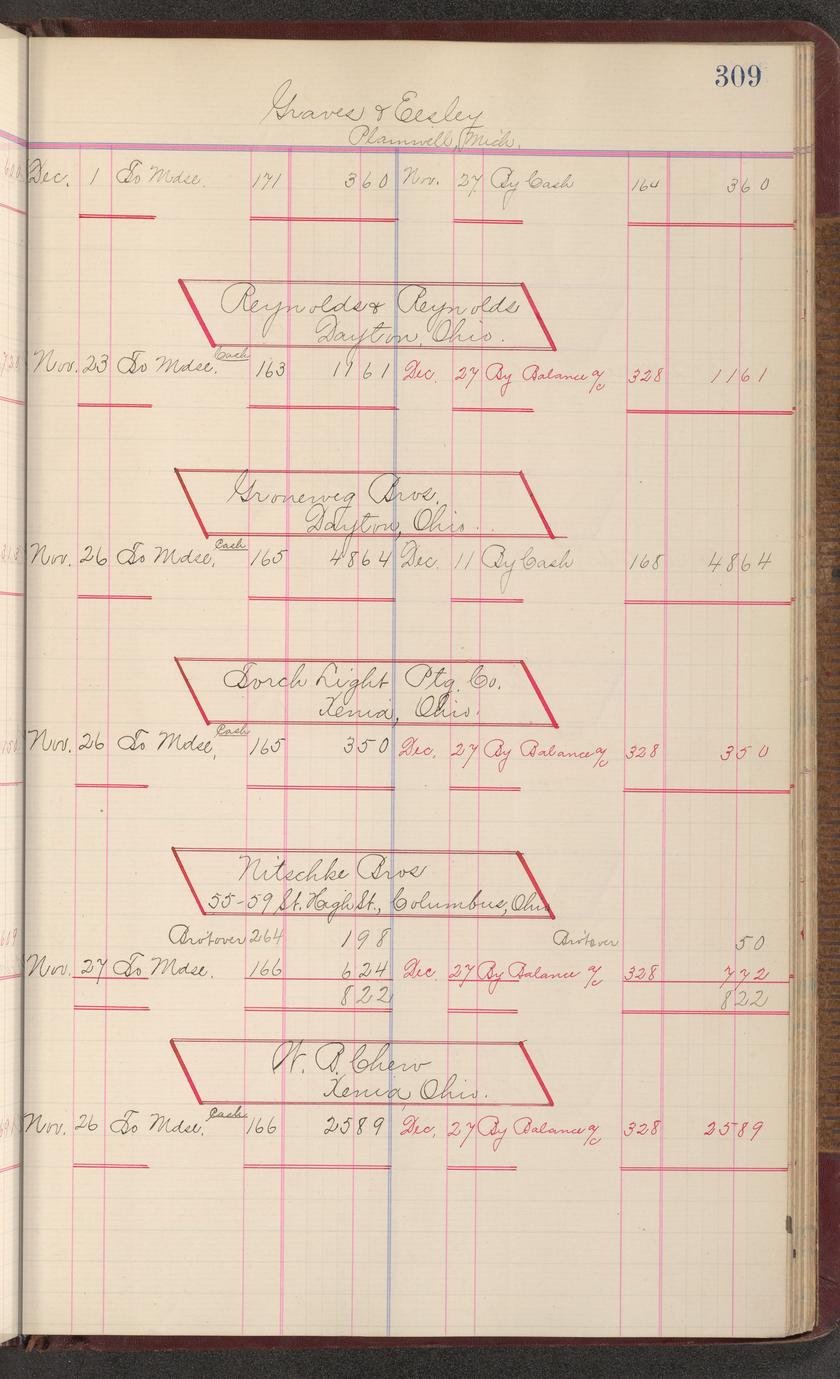 309
Graves & Eesley
Plainwell, Mich.
Dec. 1 To Mdse. 171 3 60 Nov. 27 By Cash 164 3 60
Reynolds & Reynolds
Dayton, Ohio.
Nov. 23 To Mdse. Cash 163 11 61 Dec. 27 By Balance a/c 328 11 61
Groneweg Bros.
Dayton, Ohio.
Nov. 26 To Mdse, Cash 165 48 64 Dec. 11 By Cash 168 48 64
Torch Light Ptg. Co.
Xenia, Ohio.
Nov. 26 To Mdse, Cash 165 3 50 Dec. 27 By Balance a/c 328 3 50
Nitschke Bros
55-59 St. High St., Columbus, Ohio
Bro't over 264 1 98 Bro't over 50
Nov. 27 To Mdse. 166 6 24 Dec 27 By Balance a/c 328 7 72
8 22 8 22
W. B. Chew
Xenia, Ohio.
Nov. 26 To Mdse. Cash 166 25 89 Dec. 27 By Balance a/c 328 25 89